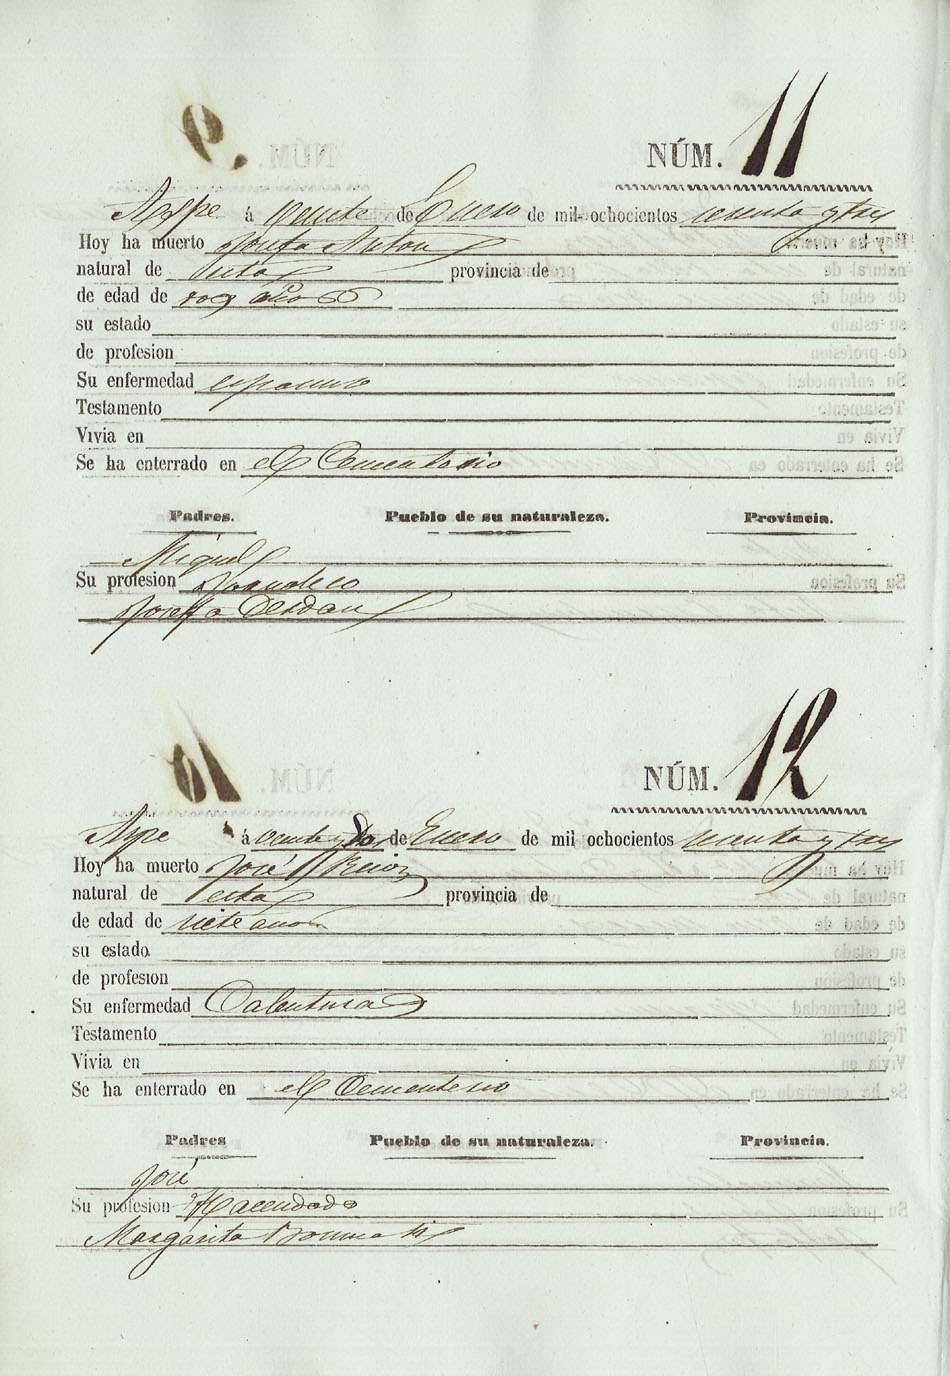 NÚM. 11
Aspe á veinte de Enero de mil ochocientos sesenta y tres
Hoy ha muerto Josefa Anton
natural de esta provincia de
de edad de dos años
su estado
de profesion
Su enfermedad
Testamento
Vivia en
Se ha enterrado en el Cementerio
Padres. Pueblo de su naturaleza. Provincia.
Miguel
Su profesion Jornalero
Josefa Cerdan
NÚM. 12
Aspe á veinte y dos de Enero de mil ochocientos sesenta y tres
Hoy ha muerto José
natural de esta provincia de
de edad de siete años
su estado
de profesion
Su enfermedad Calentura
Testamento
Vivia en
Se ha enterrado en el Cementerio
Padres Pueblo de su naturaleza. Provincia.
José
Su profesion Hacendado
Margarita